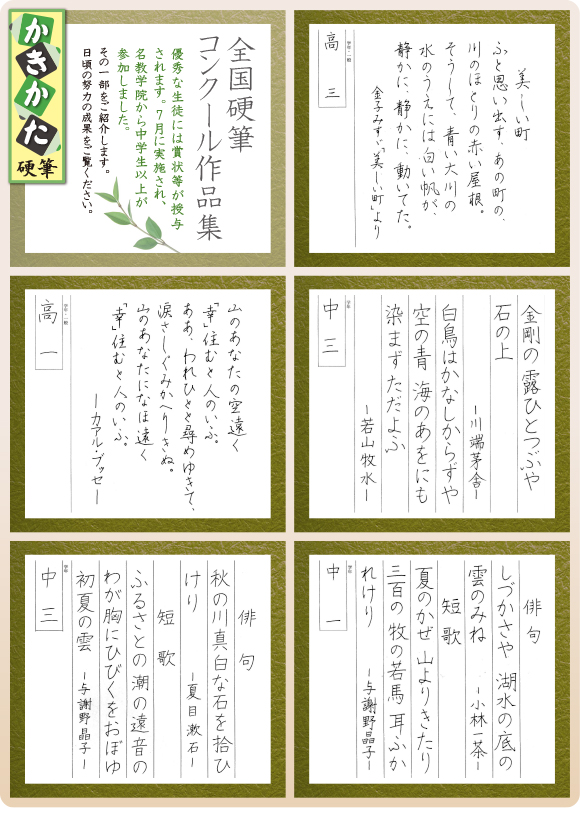 かきかた
硬筆
全国硬筆
コンクール作品集
優秀な生徒には賞状等が授与
されます。7月に実施され、
名教学院から中学生以上が
参加しました。
その一部をご紹介します。
日頃の努力の成果をご覧ください。
美しい町
ふと思い出す、あの町の、
川のほとりの赤い屋根。
そうして、青い大川の
水のうえには白い帆が、
静かに、静かに、動いてた。
金子みすゞ「美しい町」より
学年・一般
高三
山のあなたの空遠く
「幸」住むと人のいふ。
ああ、われひとと尋めゆきて、
涙さしぐみかへりきぬ。
山のあなたになほ遠く
「幸」住むと人のいふ。
ーカアル・ブッセー
学年・一般
高一
金剛の露ひとつぶや
石の上
ー川端茅舎ー
白鳥はかなしからずや
空の青 海のあをにも
染まずただよふ
ー若山牧水ー
学年
中三
俳句
秋の川真白な石を拾ひ
けり ー夏目漱石ー
短歌
ふるさとの潮の遠音の
わが胸にひびくをおぼゆ
初夏の雲 ー与謝野晶子ー
学年
中三
俳句
しづかさや 湖水の底の
雲のみね ー小林一茶ー
短歌
夏のかぜ 山よりきたり
三百の 牧の若馬 耳ふか
れけり ー与謝野晶子ー
学年
中一